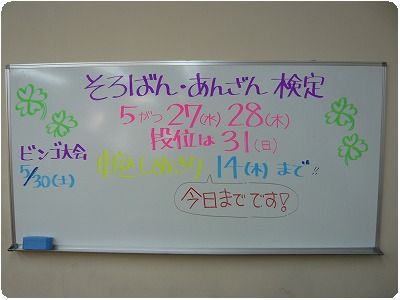 そろばん・あんざん 検定
5がつ 27(水) 28(木)
段位は 31(日)
ビンゴ大会
5/30(土)
申込しめきり 14(木) まで!!
今日までです!